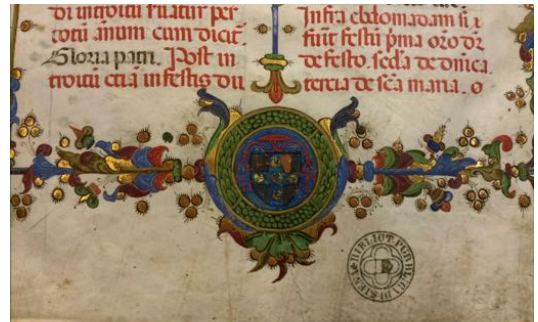 per
totū annum cum dicit̄
Gloria patri. Post in
troitū etiā in festis du
Infra ebdomadam si
fuīt festū p̄ma or̄o dr̄
de festo. sc̄da de dn̄ica.
tercia de sc̄a maria. o
BIBLIOT. PUBBLICA DI SIENA